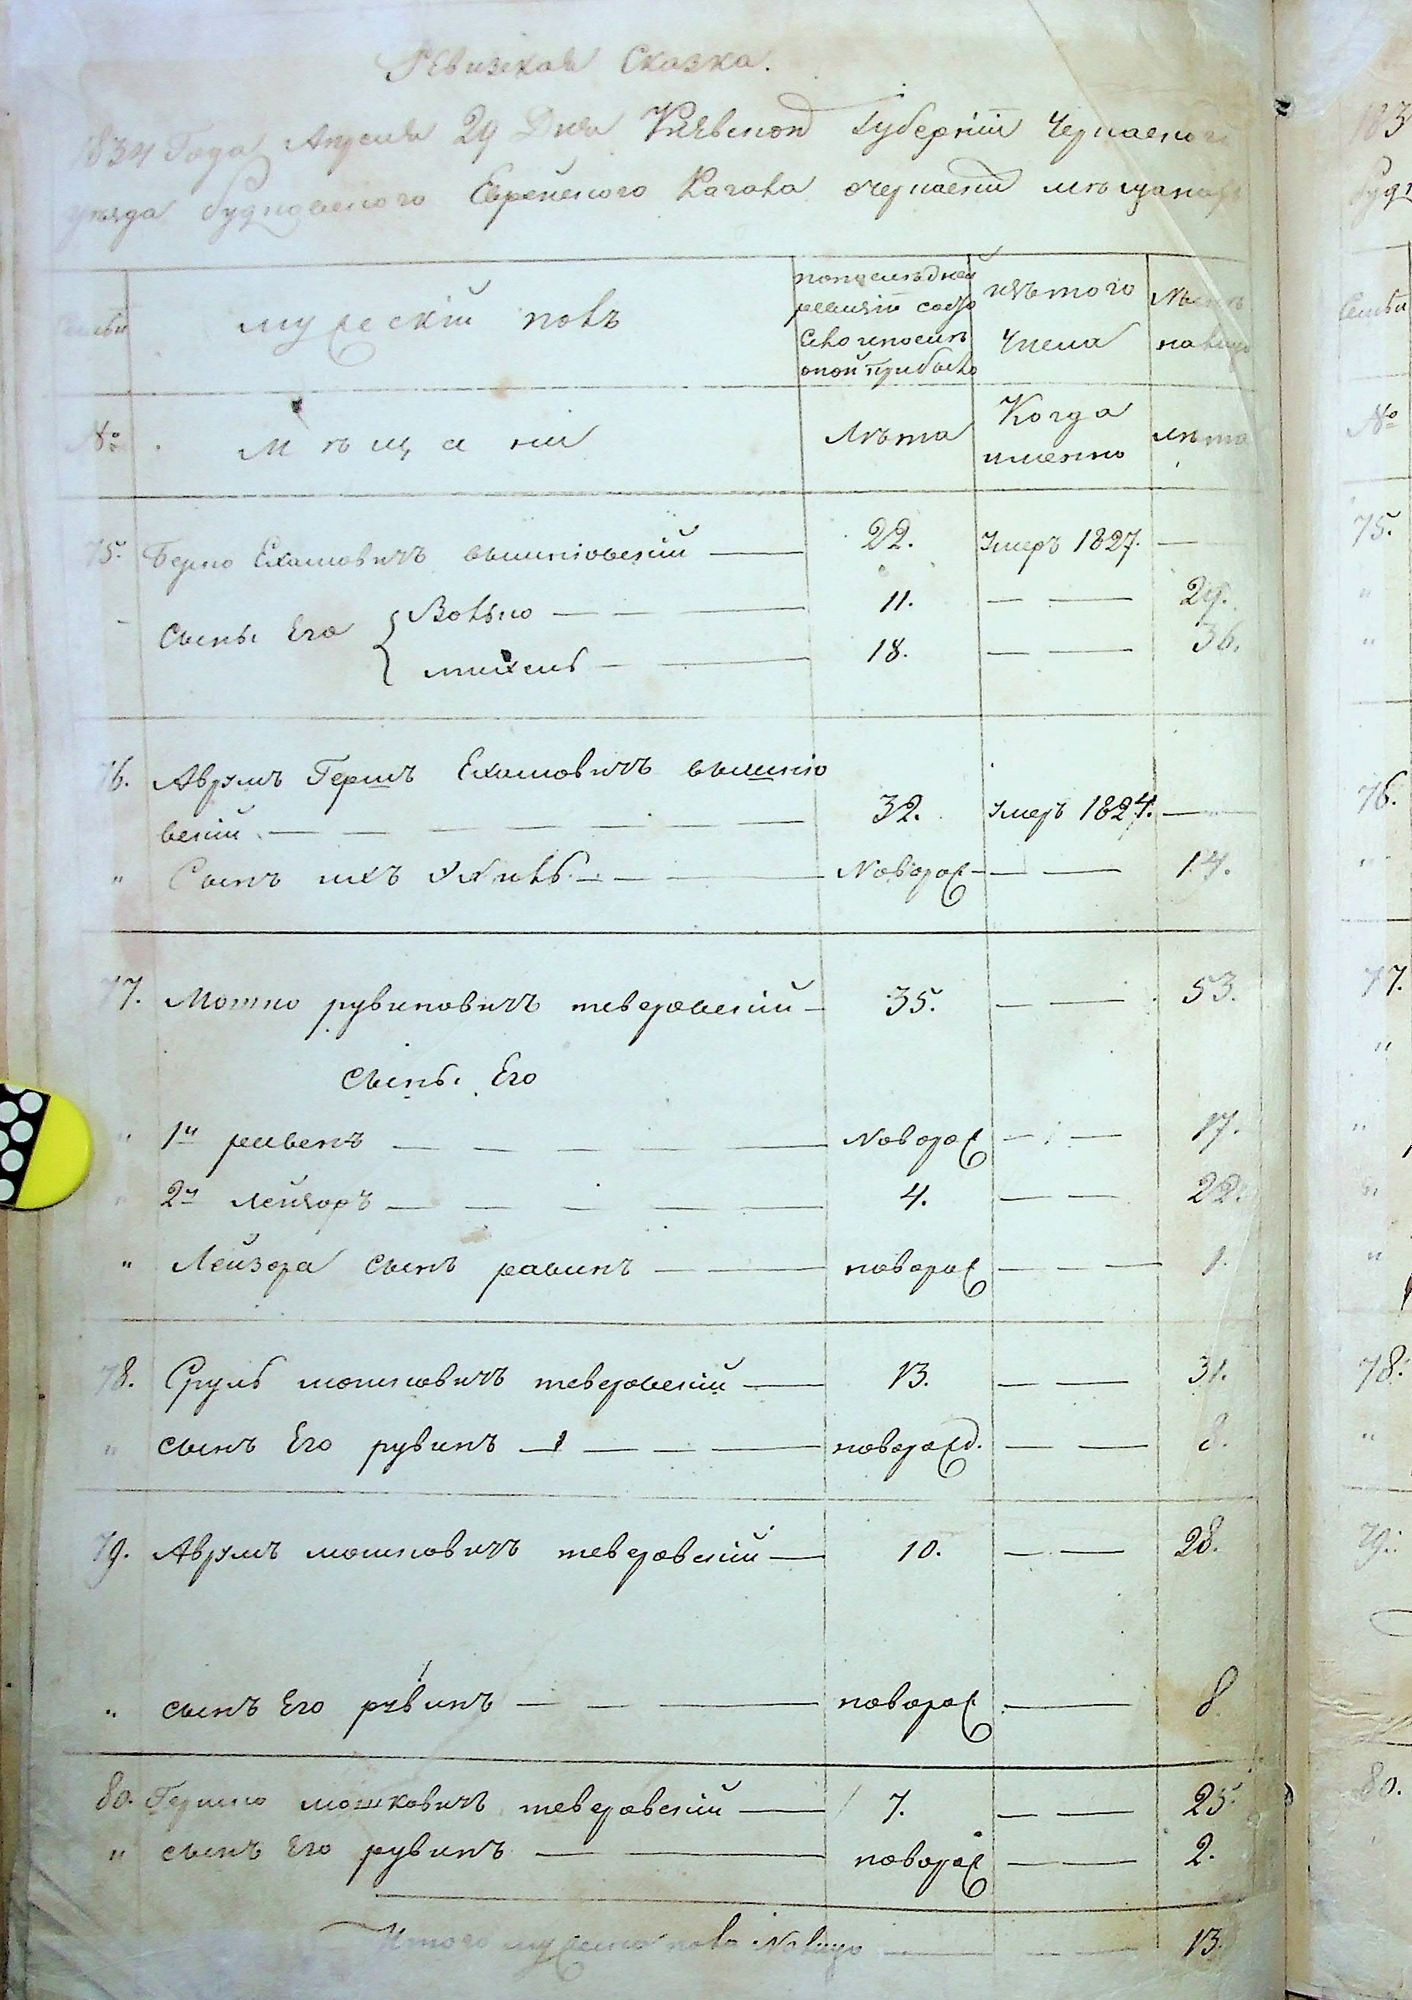 Ревизская Сказка.
1834 Года Апреля 29 Дня Киевской Губерніи Черкаского
уезда Еврейского Кагала о мещанахъ
Семьи
мужескій полъ
по последней
ревизіи состо
яло и после
оной прибыло
изъ того
числа
Ныне
на лицо
№
Мещани
Лета
Когда
именно
лета
75. Берко Ехамовичъ 22. Умеръ 1827. —
Сыны Его { Волько — — — 11. — — 29.
18. — — 36.
76. Аврумъ Гершъ Ехамовичъ
вский — — — 32. Умеръ 1824. —
" Сынъ ихъ — — Новорож — — 14.
77. Мошко рувиновичъ тверовский — 35. — — 53.
Сыны Его
" 1й — — — Новорож — — 17.
" 2й Лейзоръ — — — 4. — — 22.
" Лейзора сынъ — — новорож — — 1.
78. Сруль мошковичъ тверовский — 13. — — 31.
" сынъ Его рувинъ — — — новорожд. — — 8.
79. Аврумъ мошковичъ тверовский — 10. — — 28.
" сынъ Его рувинъ — — — новорож — 8
80. Гершко мошковичъ тверовский — 7. — — 25.
" сынъ Его рувинъ — — новорож — — 2.
Итого мужеска пола На лицо — — — 13.
183
Семьи
№
75.
"
"
76.
"
77.
"
"
"
"
78.
"
79.
80.